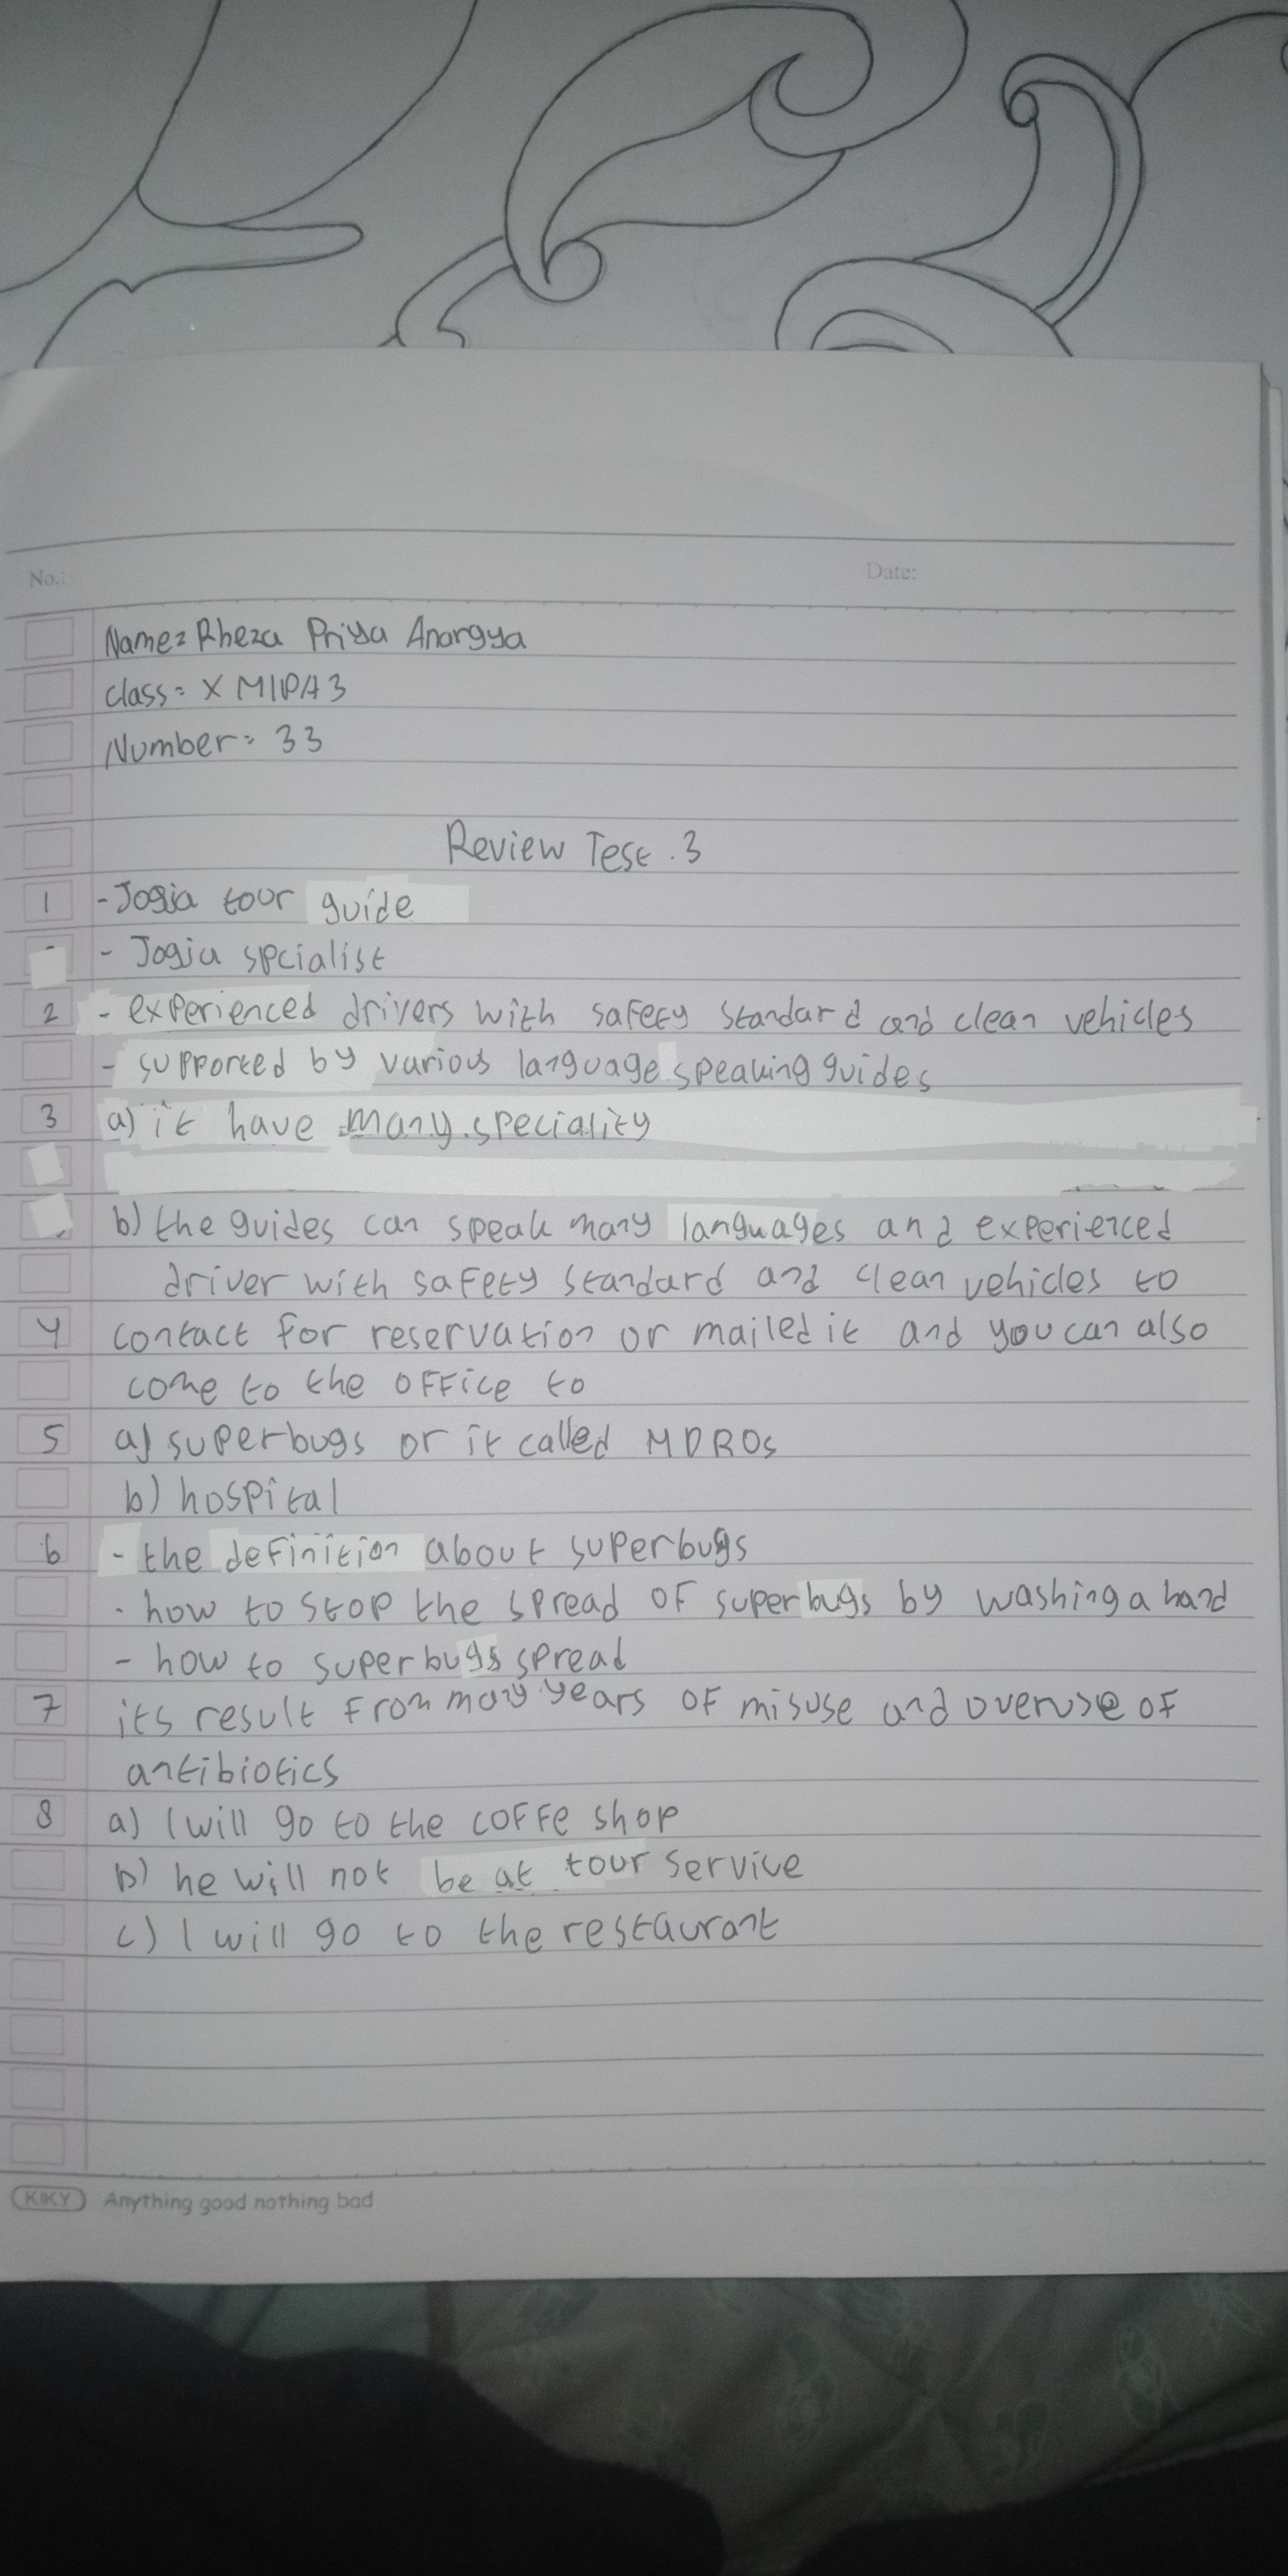 No.:
Date:
Name= Rheza Priya Anargya
class= X MIPA 3
Number= 33
Review Test . 3
1 - Jogja tour guide
- Jogja spcialist
2 - experienced drivers with safety standard and clean vehicles
- supported by various language speaking guides
3 a) it have many speciality
b) the guides can speak many languages and experienced
driver with safety standard and clean vehicles to
4 contact for reservation or mailed it and you can also
come to the office to
5 a) superbugs or it called MDROs
b) hospital
6 - the definition about superbugs
- how to stop the spread of superbugs by washing a hand
- how to superbugs spread
7 its result from many years of misuse and overuse of
antibiotics
8 a) I will go to the coffe shop
b) he will not be at tour service
c) I will go to the restaurant
KIKY Anything good nothing bad